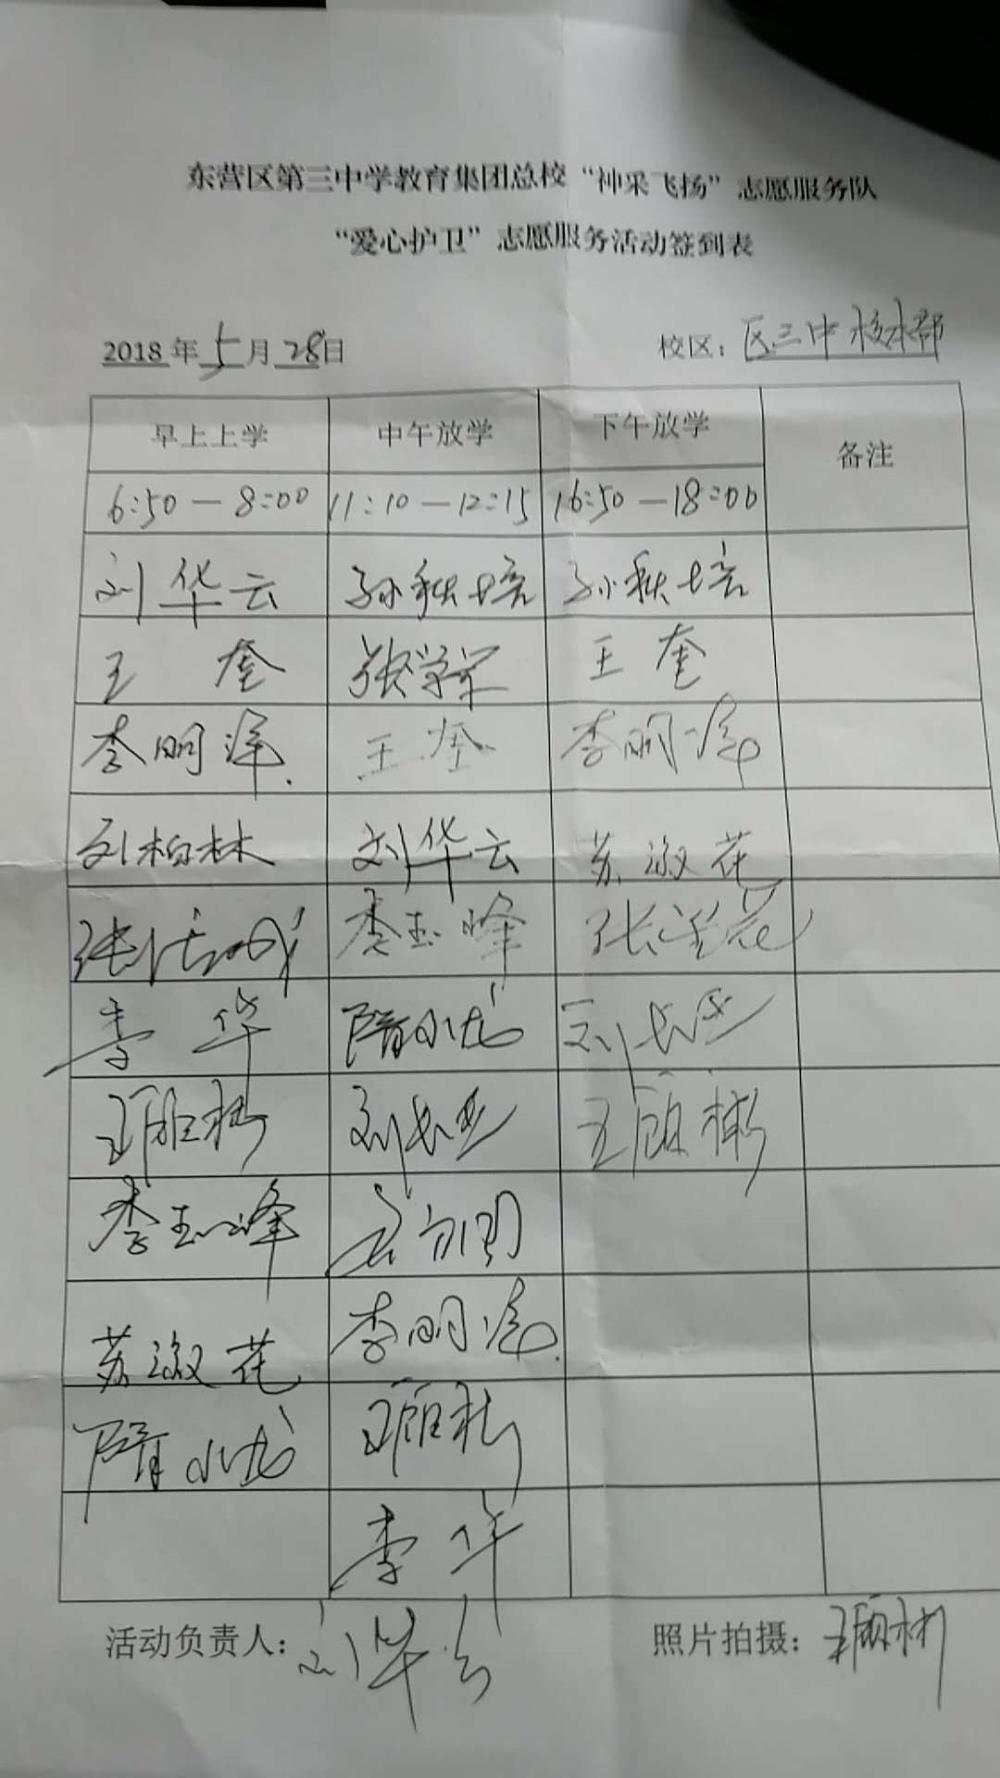 东营区第三中学教育集团总校“神采飞扬”志愿服务队
“爱心护卫”志愿服务活动签到表
2018年5月28日 校区：区三中校本部
早上上学 中午放学 下午放学 备注
6:50—8:00 11:10—12:15 16:50—18:00
刘华云 孙秋培 孙秋培
王奎 张学军 王奎
李明洋 王奎 李明洋
刘柏林 刘华云 苏淑花
李玉峰
李华 隋小龙
王顾彬
李玉峰
苏淑花 李明洋
隋小龙
李华
活动负责人：刘华云 照片拍摄：